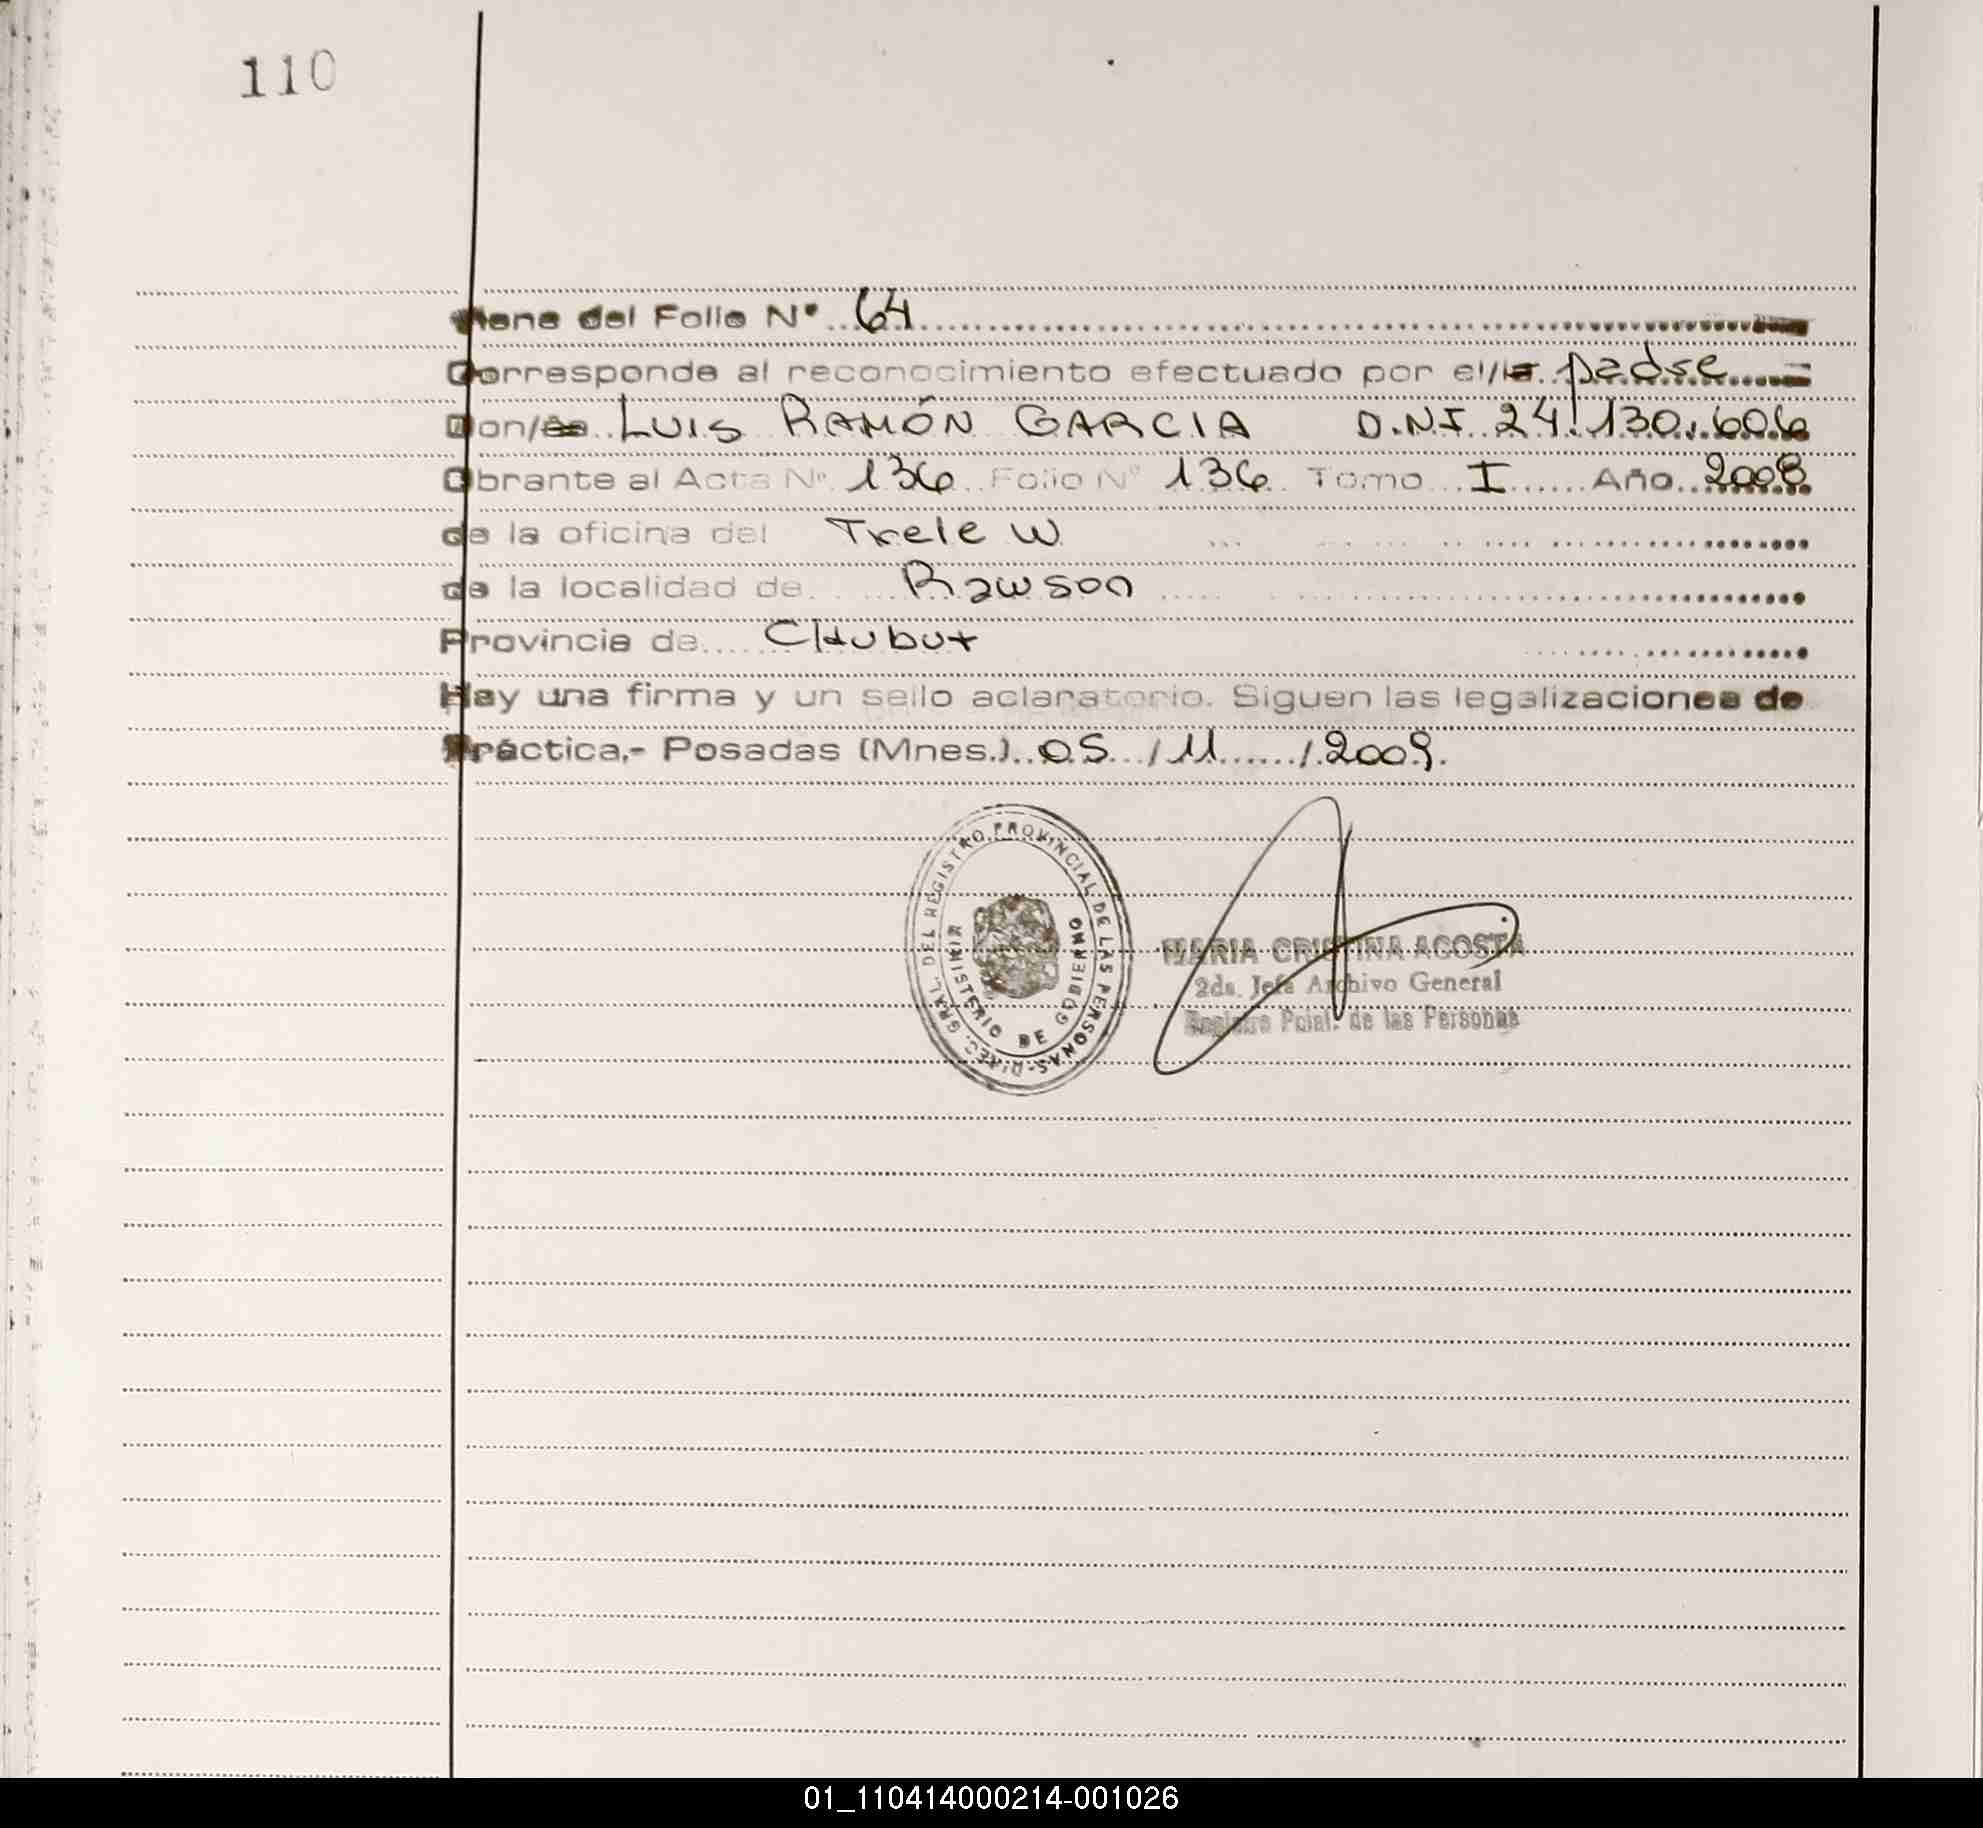 110
Viene del Folio Nº 64
Corresponde al reconocimiento efectuado por el/la padre
Don/ña LUIS RAMÓN GARCIA D.N.I 24.130.606
Obrante al Acta Nº 136 Folio Nº 136 Tomo I Año 2008
de la oficina del Trelew
de la localidad de Rawson
Provincia de CHubut
Hay una firma y un sello aclaratorio. Siguen las legalizaciones de
Práctica,- Posadas (Mnes.) 05 / 11 / 2009.
DIREC. GRAL. DEL REGISTRO PROVINCIAL DE LAS PERSONAS-
MINISTERIO DE GOBIERNO
MARIA CRISTINA ACOSTA
2da. Jefa Archivo General
Registro Pcial. de las Personas
01_110414000214-001026